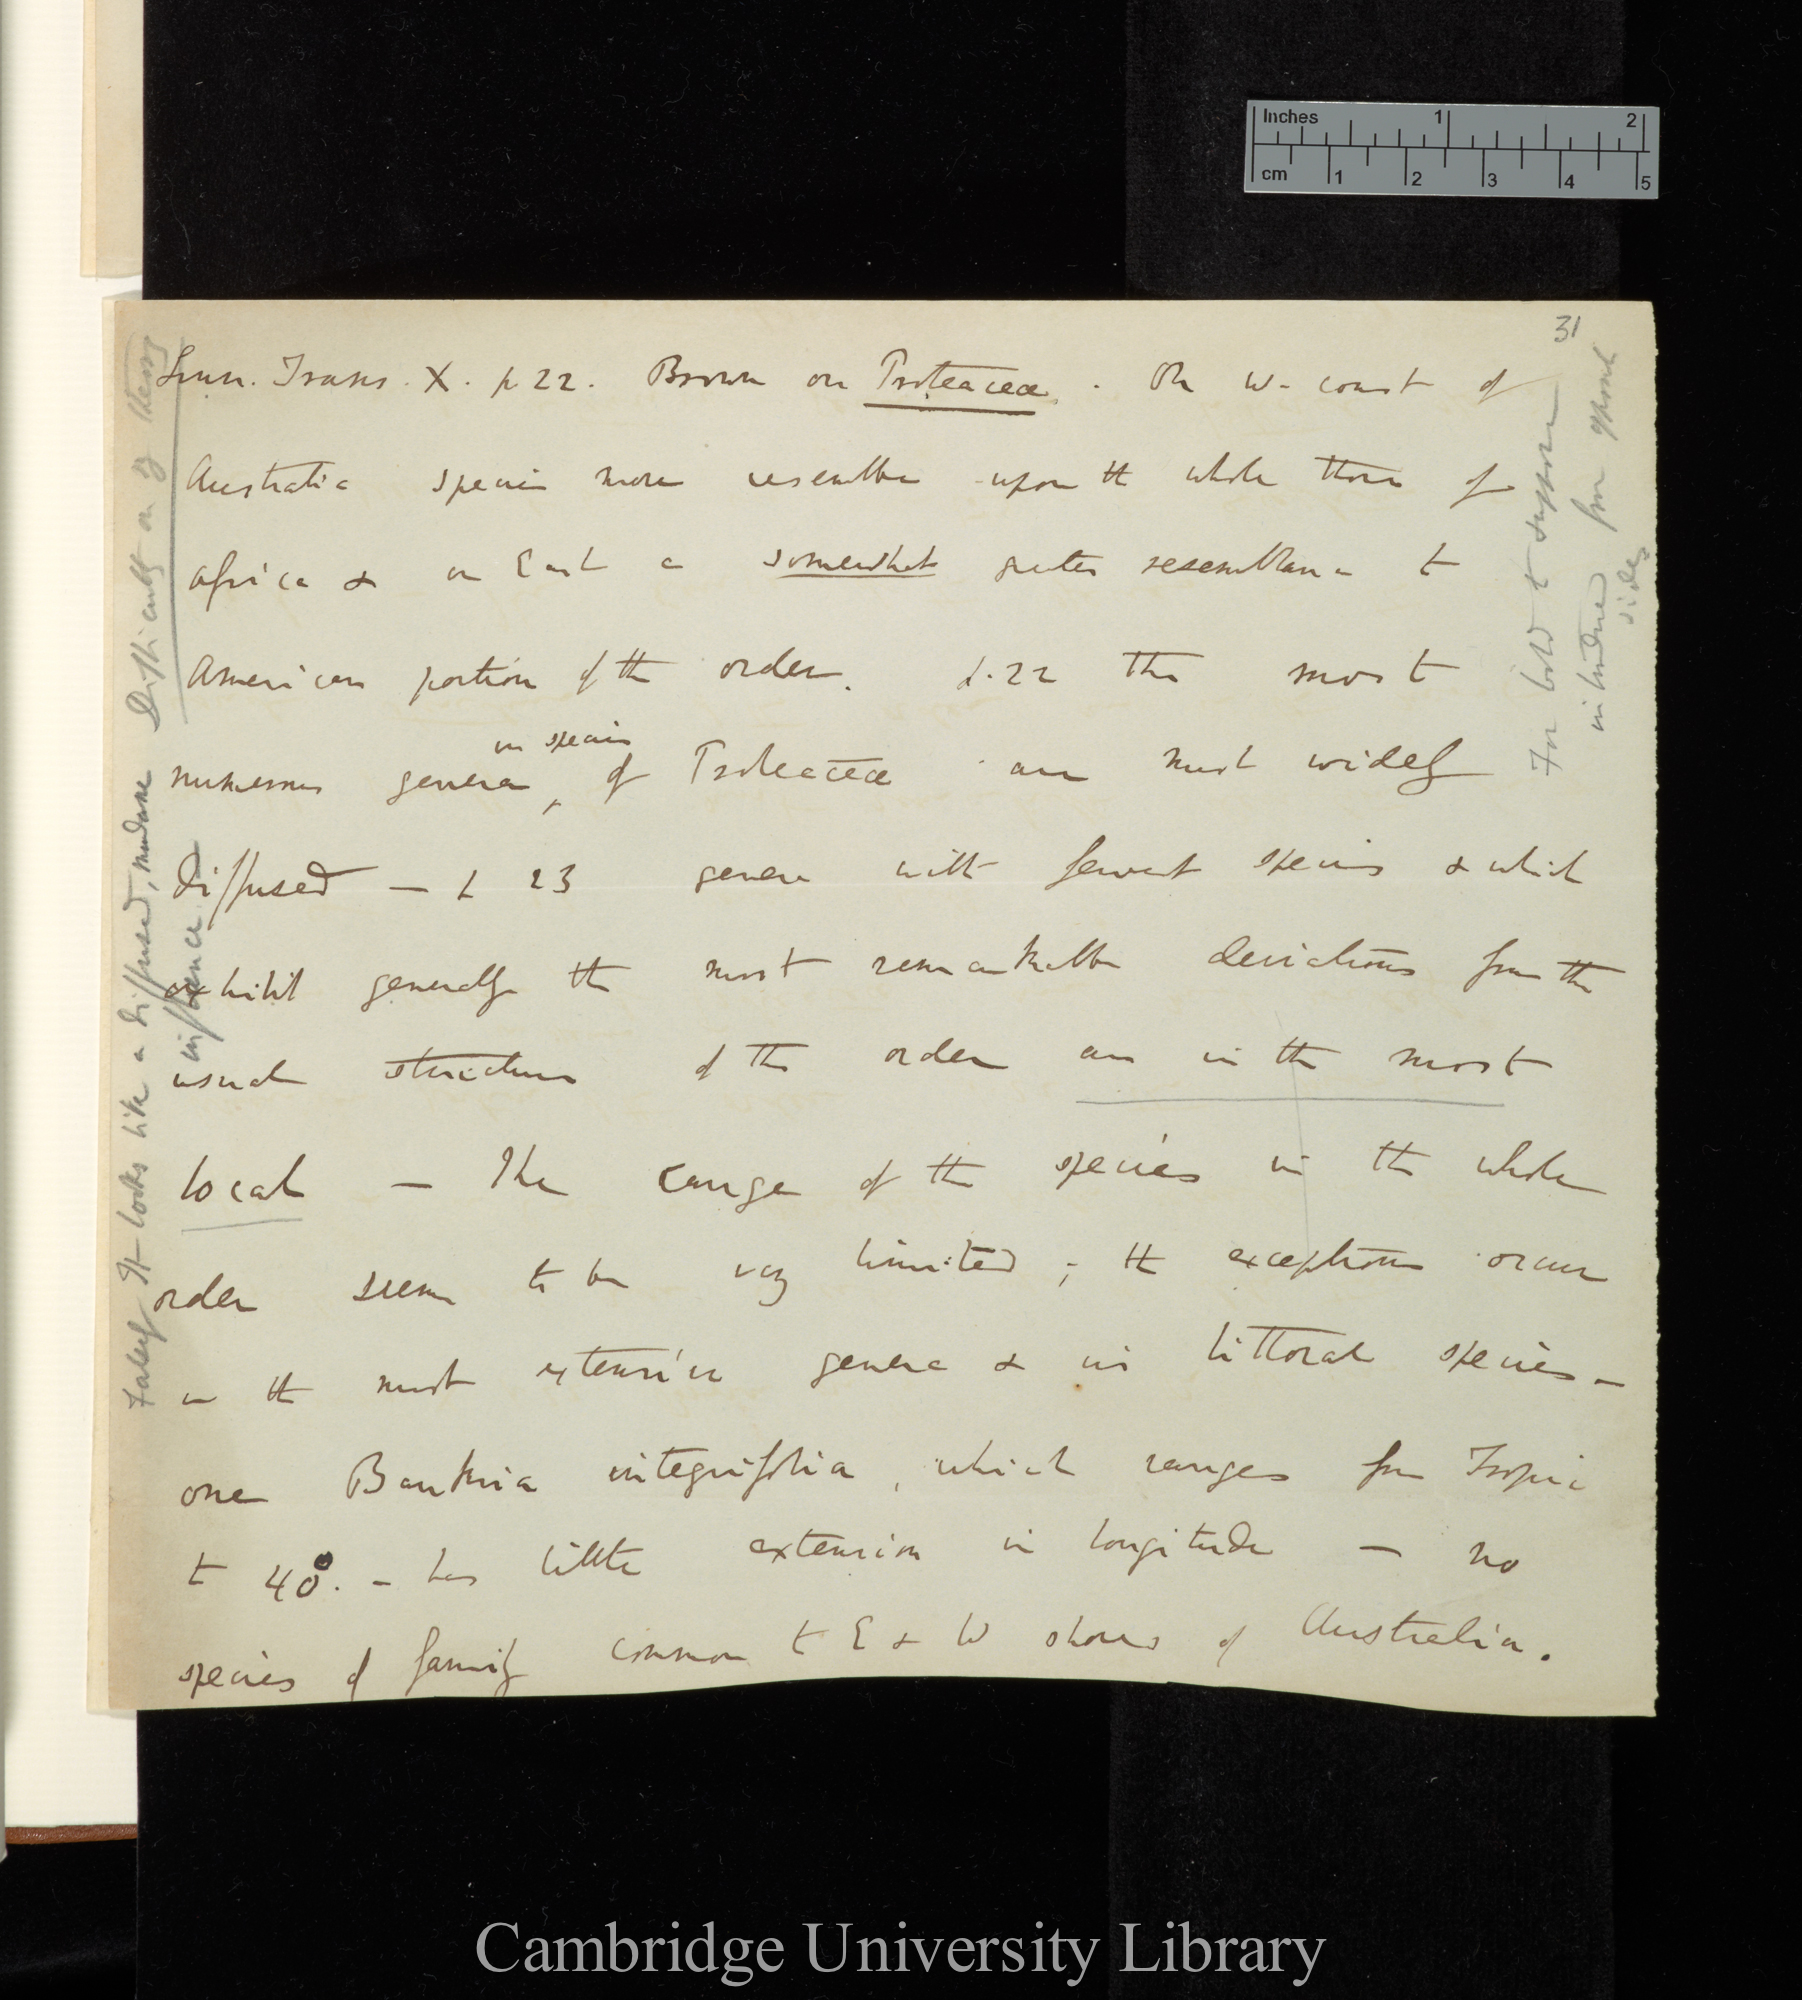 31
Linn. Trans. X. p 22. Brown on Proteaceæ. On W. coast of
Australia species more resemble upon the whole those of
Africa & on East a somewhat greater resemblance to
American portion of the order. p. 22 The most
numerous genera, in species of Proteaceæ are most widely
diffused — p 23 genera with fewest species & which
exhibit generally the most remarkable deviations from the
usual structure of the order are in the most
local — The range of the species in the whole
order seem to be very limited; the exceptions occur
in the most extensive genera & in littoral species —
one Banksia integrifolia, which ranges from Tropic
to 40°. — has little extension in longitude — no
species of family common to E & W shores of Australia.
Difficulty on my theory
It looks like a diffused, mundane
influence
For bold to suppose
introduced from opposite
sides
Inches 1 2
cm 1 2 3 4 5
Cambridge University Library